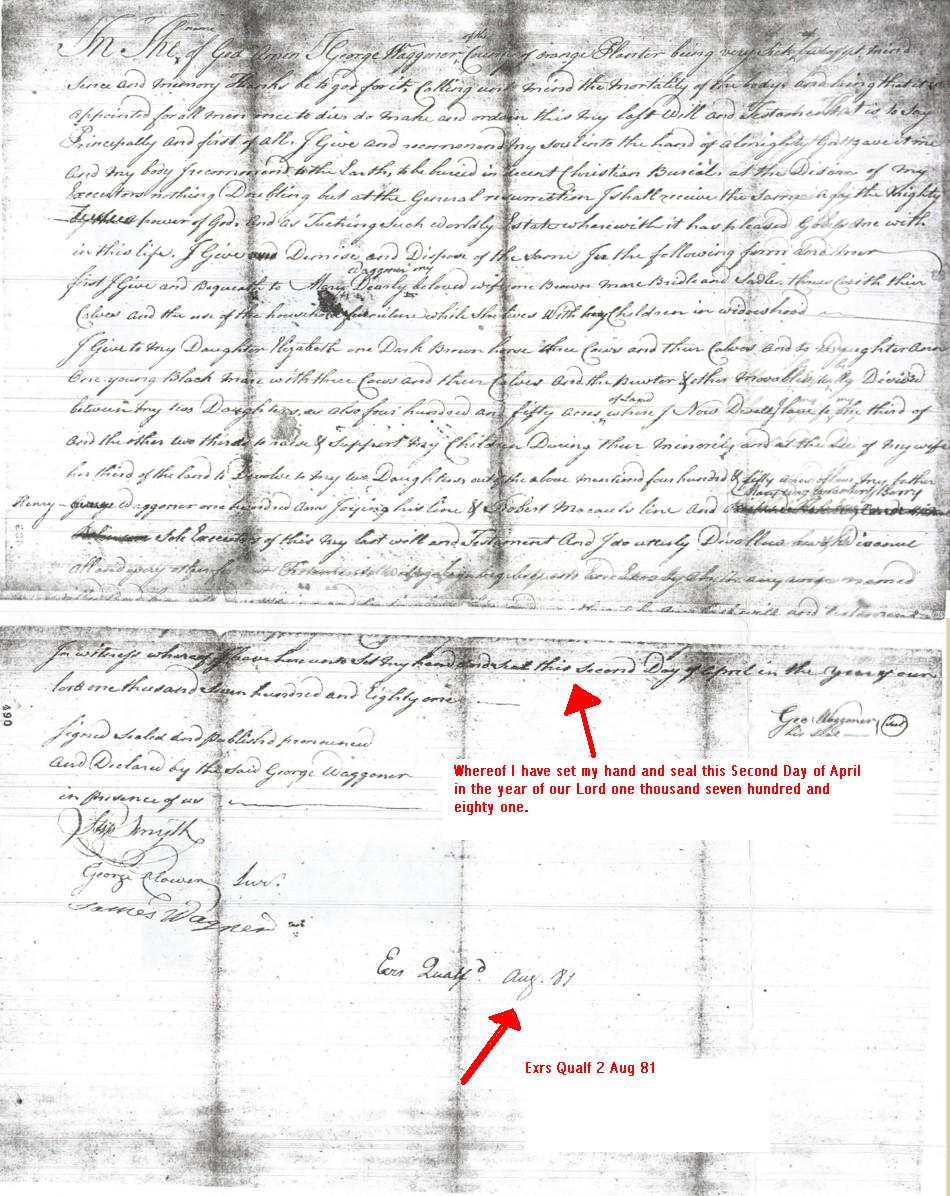 name of the
In The of God Amen I George Waggoner, County of orange Planter being very Sick
Sence and memory Thanks be to god for it Calling unto mind the mortality of the body and being that it is
appointed for all men once to die do make and ordain this my last Will and Testament that is to Say
Principally and first of all, I Give and recommend my Soul into the hand of almighty God gave it me
And my body I recommend to the Earth, to be buried in decent Christian Burial, at the Discre of my
Executors nothing Doubting but at the General resurrection I shall receive the Same again by the Mighty
power of God, And as Tuching Such Worldly Estate wherewith it has pleased God me with
in this life, I Give Demise and Dispose of the Same In the following form and
Waggoner my
first I Give and Bequeath to Mary Dearly beloved wife one Brown mare Bridle and Sadle, three Cows with their
Calves And the use of the household furniture while She lives With my Children in widowhood
I Give to my Daughter Elizabeth one Dark Brown horse three Cows and their Calves And to Daughter Ann
One young Black Mare with three Cows and their Calves And the Pewter & other movables Divided
of Land my my
between my two Daughters, as also four hundred and fifty acres where I Now Dwell third of
And the other two thirds to raise & Support my Children During their Minority and at the of my wife
her third of the land to Devolve to my two Daughters out of the above mentiond four hundred & fifty acres of land my father
Henry Waggoner one hundred acres Joying his line & Robert Macauls line And
Sole Executors of this my last will and Testament And I do utterly Disallow Disanul
all and every other named
will and testament
In witness whereof I have hereunto Set my hand and seal this second Day of April in the year of our
lord one thousand Seven hundred and Eighty one
490
Geo Waggoner Seal
his
Signed Sealed and published pronounced
And Declared by the Said George Waggoner
in presence of us
Smyth
George Jur.
James Wagner
Exrs Qualfd Aug. 81
Whereof I have set my hand and seal this Second Day of April
in the year of our Lord one thousand seven hundred and
eighty one.
Exrs Qualf 2 Aug 81